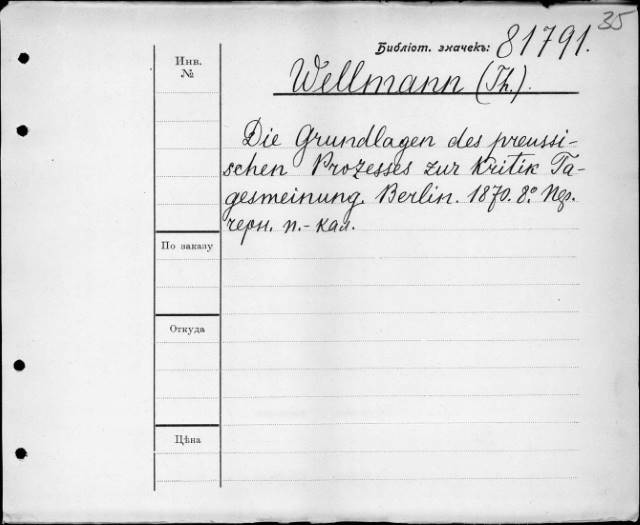 35
Библіот. значекъ: 81791.
Инв.
№
Wellmann (Th.).
Die Grundlagen des preussi-
schen Prozesses zur Kritik Ta-
gesmeinung. Berlin. 1870. 8.° Пер.
черн. п.-кал.
По заказу
Откуда
Цѣна